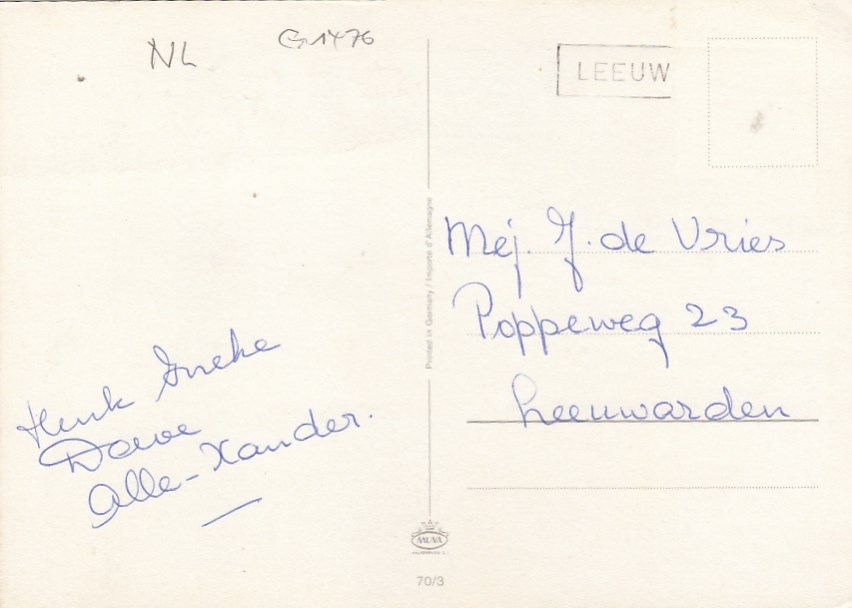 NL
G1476
LEEUW
Mej. J. de Vries
Poppeweg 23
Leeuwarden
Printed in Germany / Importé d'Allemagne
Henk Ineke
Douwe
Alle-Xander.
MUVA
70/3